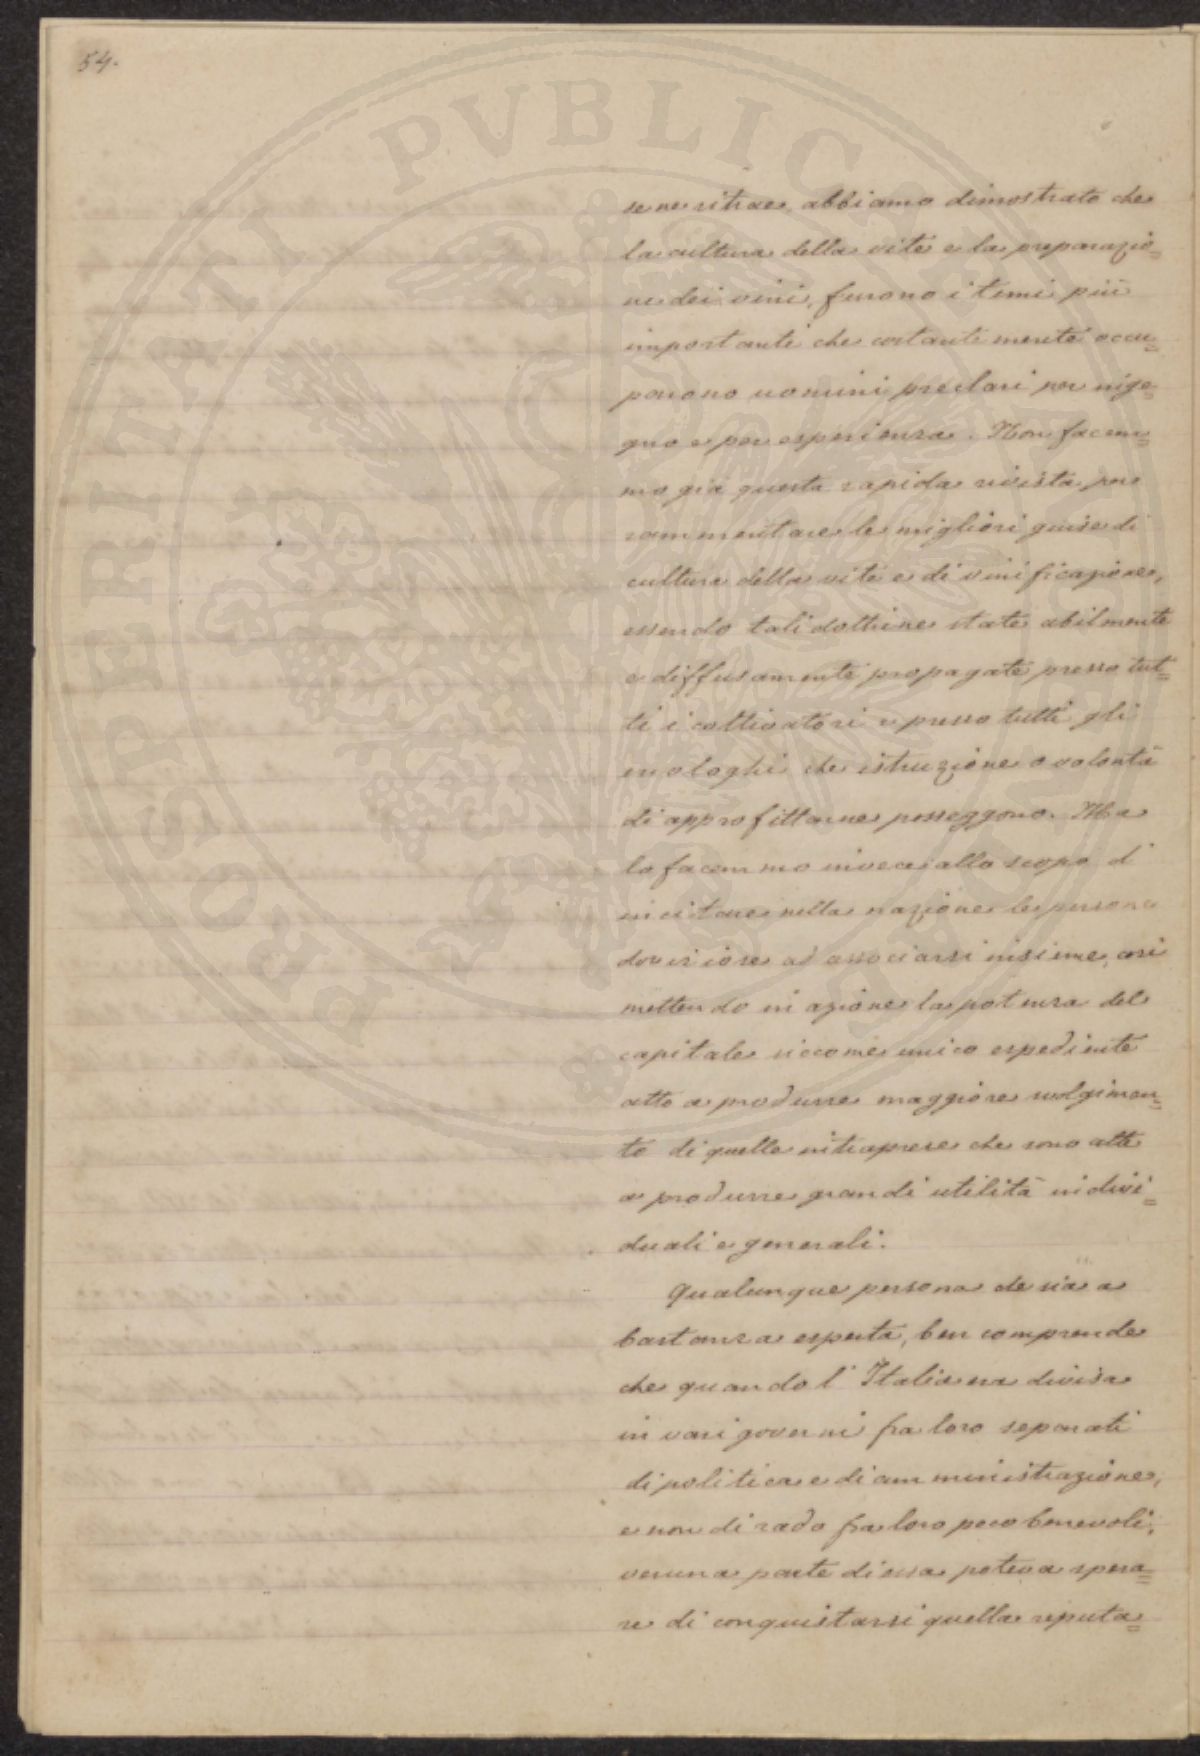 54.
se ne ritrae, abbiamo dimostrato che
la cultura della vite e la preparazio=
ne dei vini, furono i temi più
importanti che costantemente occu=
parono uomini preclari per inge=
gno e per esperienza. Non facem=
mo già questa rapida rivista per
rammentare le migliori guise di
cultura della vite e di vinificazione,
essendo tali dottrine state abilmente
e diffusamente propagate presso tut=
ti i coltivatori e presso tutti gli
enologhi che istruzione o volontà
di approfittarne posseggono. Ma
lo facemmo invece allo scopo d'
incitare nella nazione le persone
doviziose ad associarsi insieme, così
mettendo in azione la potenza del
capitale siccome unico espediente
atto a produrre maggiore svolgimen=
to di quelle intraprese che sono atte
a produrre grandi utilità indivi=
duali e generali.
Qualunque persona che sia a
bastanza esperta, ben comprende
che quando l'Italia era divisa
in vari governi fra loro separati
di politica e di amministrazione,
e non di rado fra loro poco benevoli,
veruna parte di essa poteva spera=
re di conquistarsi quella reputa=
PROSPERITATI PUBLICAE